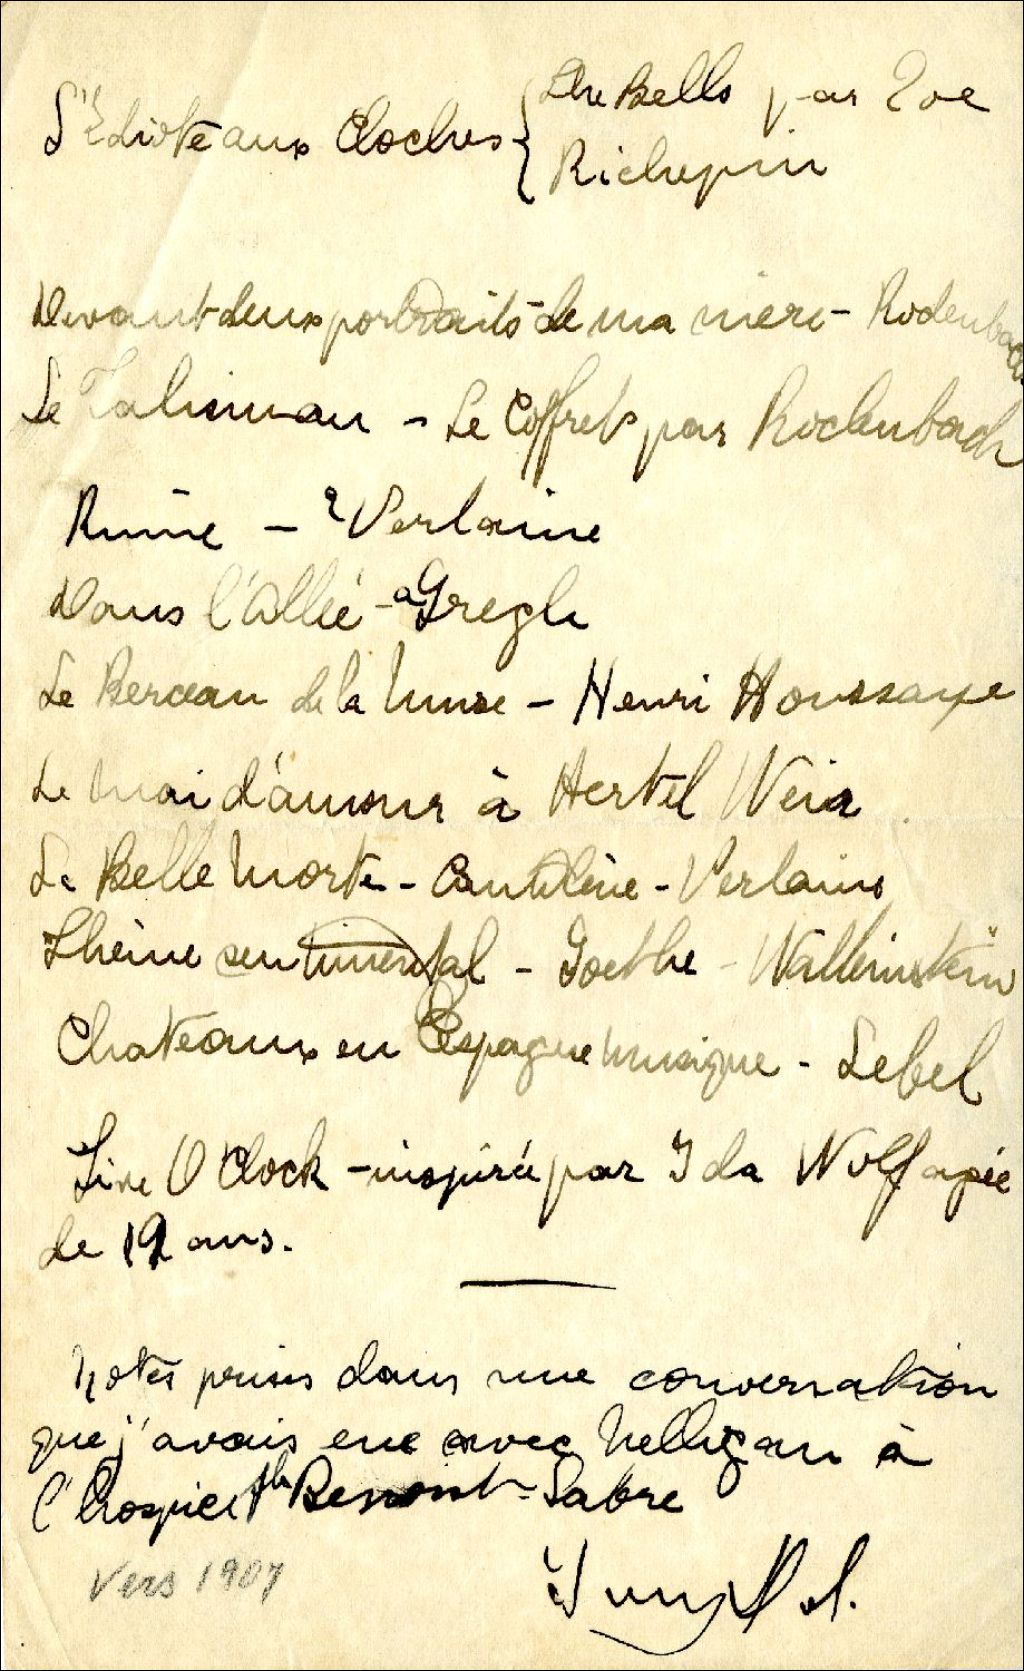 L'Idiote aux Cloches { The Bells par Poe
Richepin
Devant deux portraits de ma mère - Rodenbach
Le Talisman - Le Coffret par Rodenbach
Ruine - à Verlaine
Dans l'allée - à Gregh
Le Berceau de la Muse - Henri Houssaye
Le Mai d'amour à Hertel Weir
La Belle Morte - Cantilène - Verlaine
Thème sentimental - Goethe - Wallenstein
Chateaux en Espagne musique - Lebel
Five O Clock - inspirée par Ida Wolf agée
de 19 ans.
Notes prises dans une conversation
que j'avais eue avec Nelligan à
l'hospice St Benoit-Labre
Vers 1907